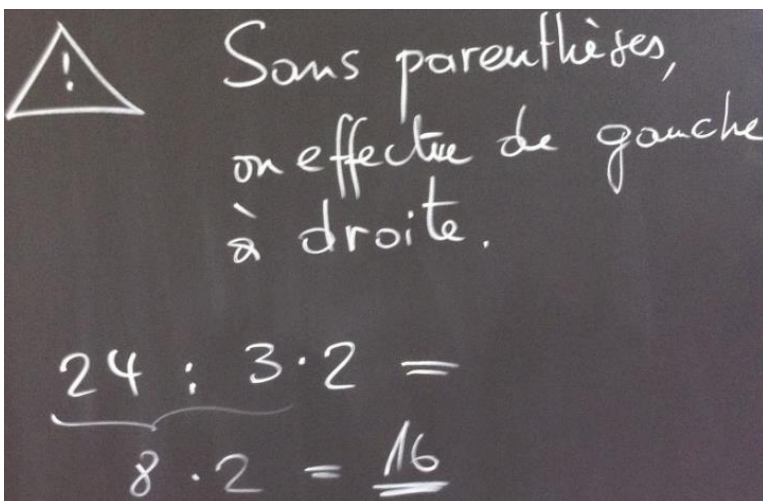 !
Sans parenthèses,
on effectue de gauche
à droite.
24 : 3 · 2 =
8 · 2 = 16